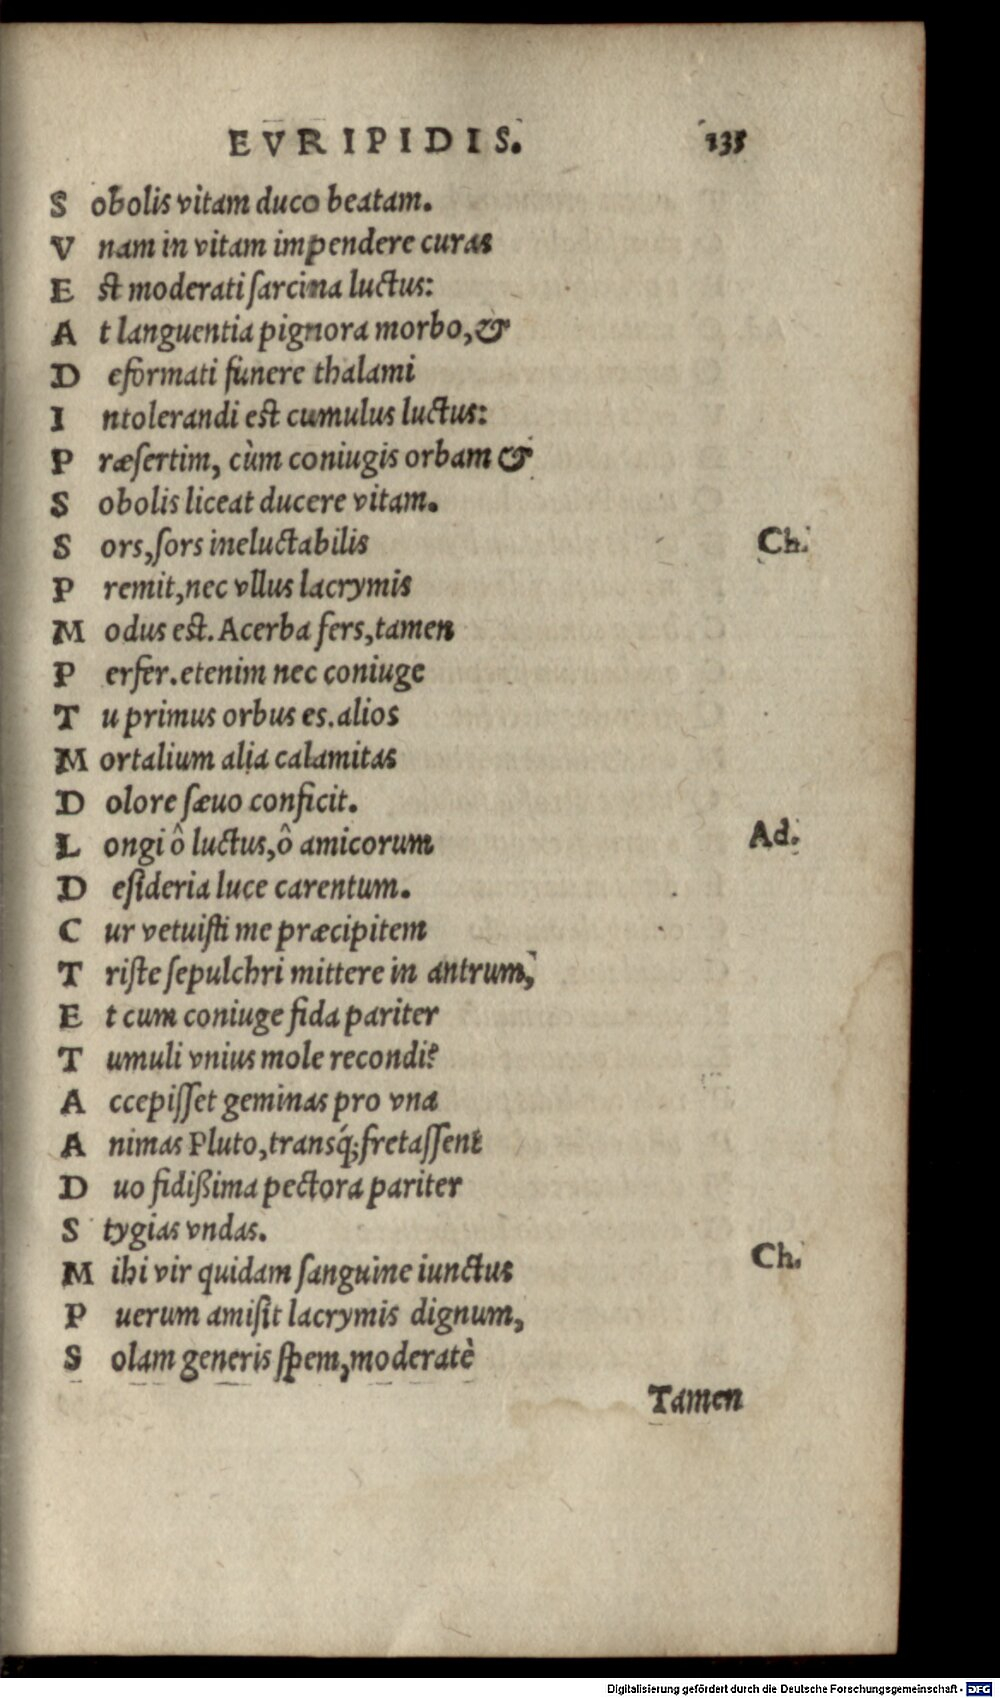 EVRIPIDIS. 135
S obolis vitam duco beatam.
V nam in vitam impendere curas
E st moderati ſarcina luctus:
A t languentia pignora morbo, &
D eformati funere thalami
I ntolerandi est cumulus luctus:
P ræſertim, cùm coniugis orbam &
S obolis liceat ducere vitam.
S ors, ſors ineluctabilis Ch.
P remit, nec vllus lacrymis
M odus est. Acerba fers, tamen
P erfer. etenim nec coniuge
T u primus orbus es. alios
M ortalium alia calamitas
D olore ſæuo conficit.
L ongi ô luctus, ô amicorum Ad.
D eſideria luce carentum.
C ur vetuiſti me præcipitem
T riſte ſepulchri mittere in antrum,
E t cum coniuge fida pariter
T umuli vnius mole recondi?
A ccepiſſet geminas pro vna
A nimas Pluto, transq́; fretaſſent
D uo fidißima pectora pariter
S tygias vndas.
M ihi vir quidam ſanguine iunctus Ch.
P uerum amiſit lacrymis dignum,
S olam generis ſpem, moderatè
Tamen
Digitalisierung gefördert durch die Deutsche Forschungsgemeinschaft - DFG